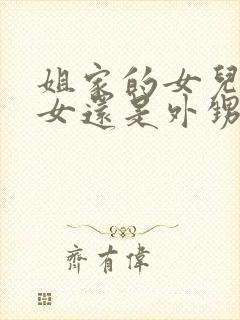 姐家的女兒
女還是外甥
齊有偉